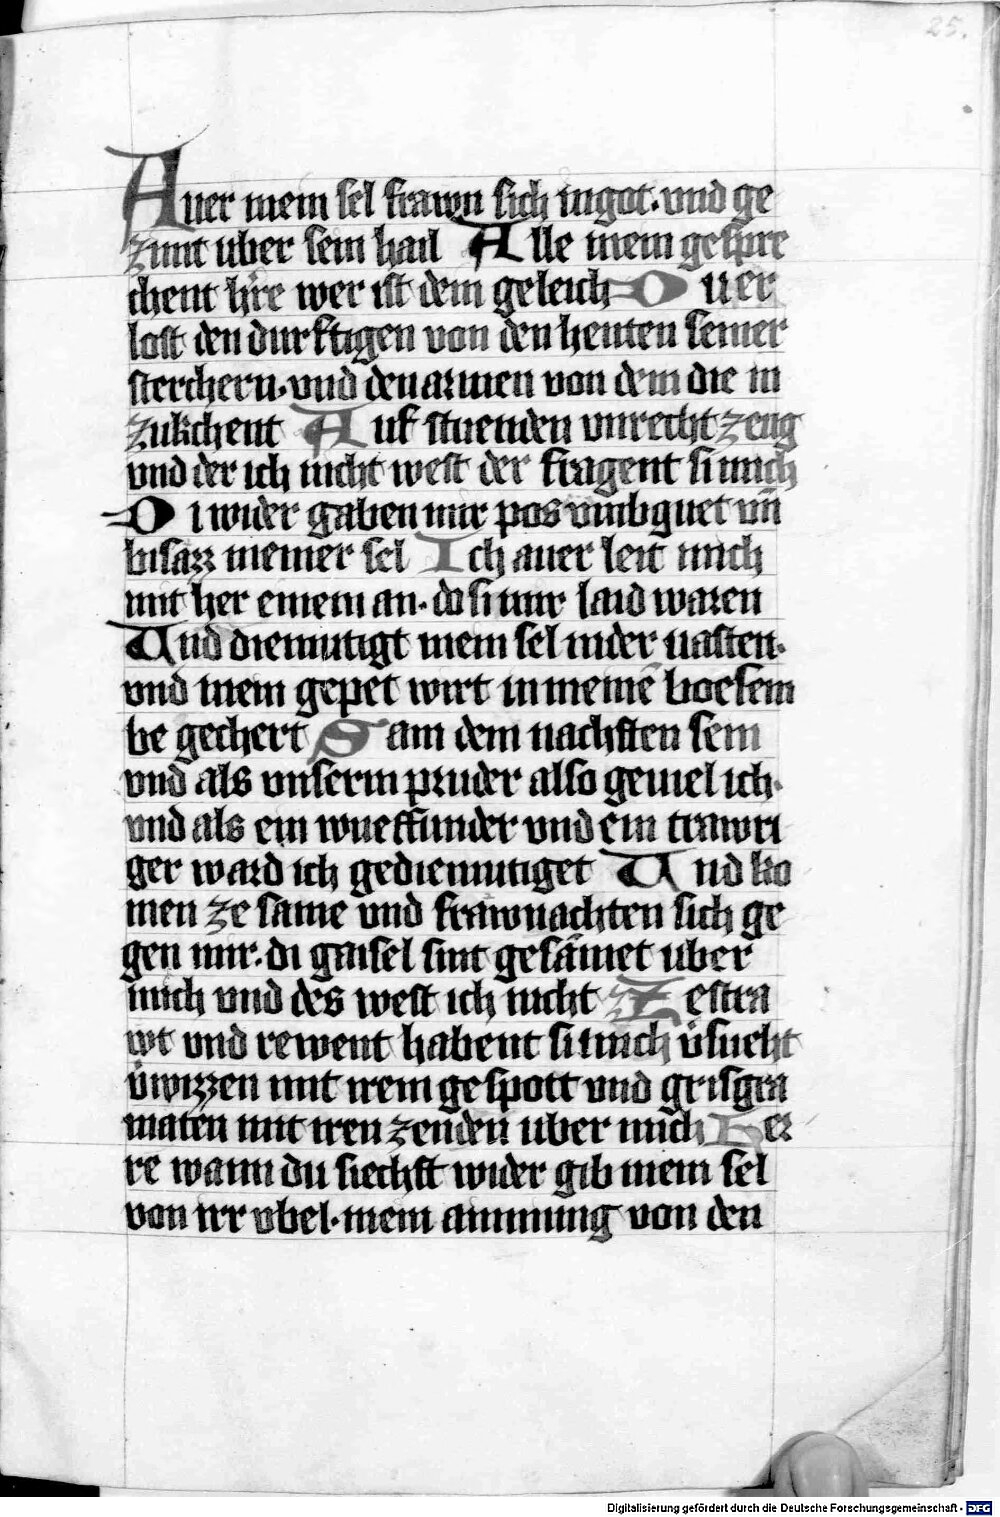 25.
Auer mein sel frawn sich in got. vnd ge
zimt uber sein hail Alle mein gespre
chent hr̄re wer ist dem geleich Du er
lost den durftigen von den henten seiner
sterchern. vnd den armen von dem die in
zukchent Auf stuenden vnrecht zeug
vnd der ich nicht west der fragent si mich
Di wider gaben mir pos vmb guet vn̄
bisazz meiner sel Ich auer leit mich
mit her einem an. do si mir laid waren
Und diemutigt mein sel in der uasten.
vnd mein gepet wirt in meinē boesem
be gechert Sam dem nachsten sein
vnd als vnserm pruder also geuiel ich.
vnd als ein wueffunder vnd ein trawri
ger ward ich gediemutiget Und ko
men ze same vnd frawnachten sich ge
gen mir. di gaisel sint gesāmet uber
mich vnd des west ich nicht Zestra
wt vnd rewent habent si mich v̇sucht
v̇wizzen mit irem gespott vnd grisgra
maten mit iren zenden uber mich Her
re wann du siechst wider gib mein sel
von irr vbel. mein ainmung von den
Digitalisierung gefördert durch die Deutsche Forschungsgemeinschaft - DFG